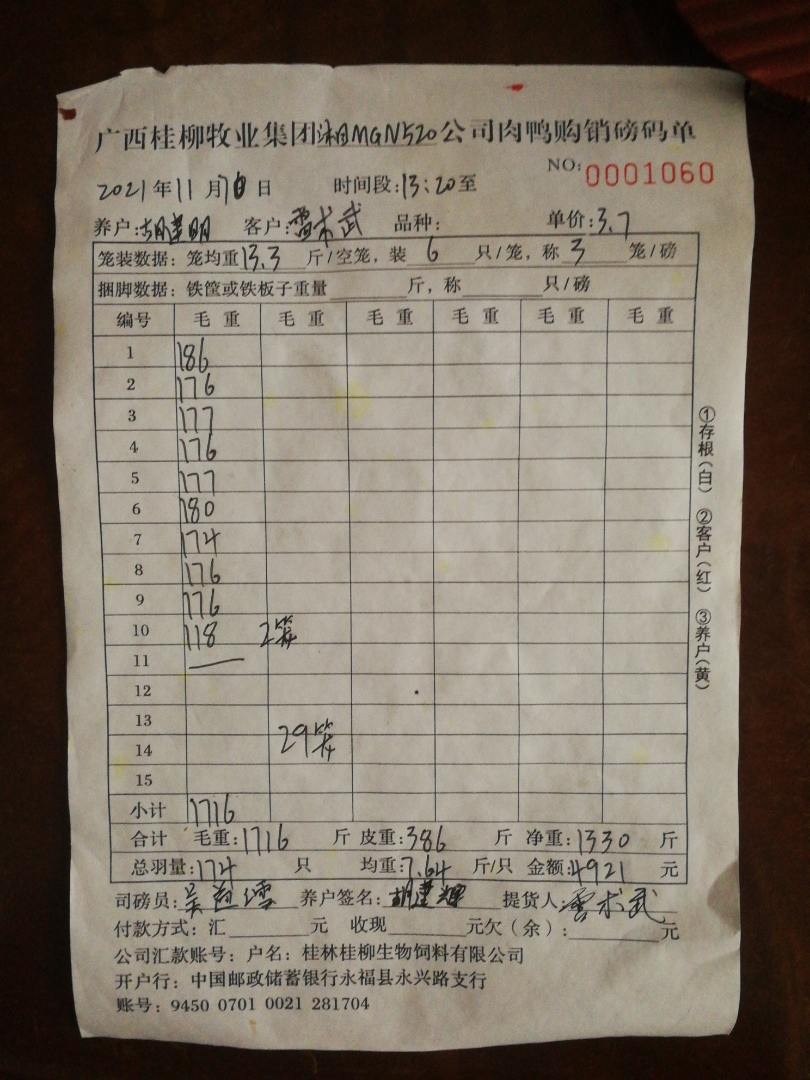 广西桂柳牧业集团湘MGN520公司肉鸭购销磅码单
NO: 0001060
2021年11月 日 时间段:13:20至
养户:胡 明 客户:雷术武 品种: 单价:3.7
笼装数据: 笼均重13.3斤/空笼, 装6只/笼, 称3笼/磅
捆脚数据: 铁筐或铁板子重量 斤, 称 只/磅
编号 毛重 毛重 毛重 毛重 毛重 毛重
1 186
2 176
3 177
4 176
5 177
6 180
7 174
8 176
9 176
10 118 2笼
11 —
12
13
29笼
14
15
小计 1716
合计 毛重:1716斤 皮重:386斤 净重:1330斤
总羽量:174只 均重:7.64斤/只 金额:4921元
司磅员:吴 养户签名:胡 提货人:雷术武
付款方式: 汇 元 收现 元欠(余): 元
公司汇款账号: 户名: 桂林桂柳生物饲料有限公司
开户行: 中国邮政储蓄银行永福县永兴路支行
账号: 9450 0701 0021 281704
①存根(白) ②客户(红) ③养户(黄)